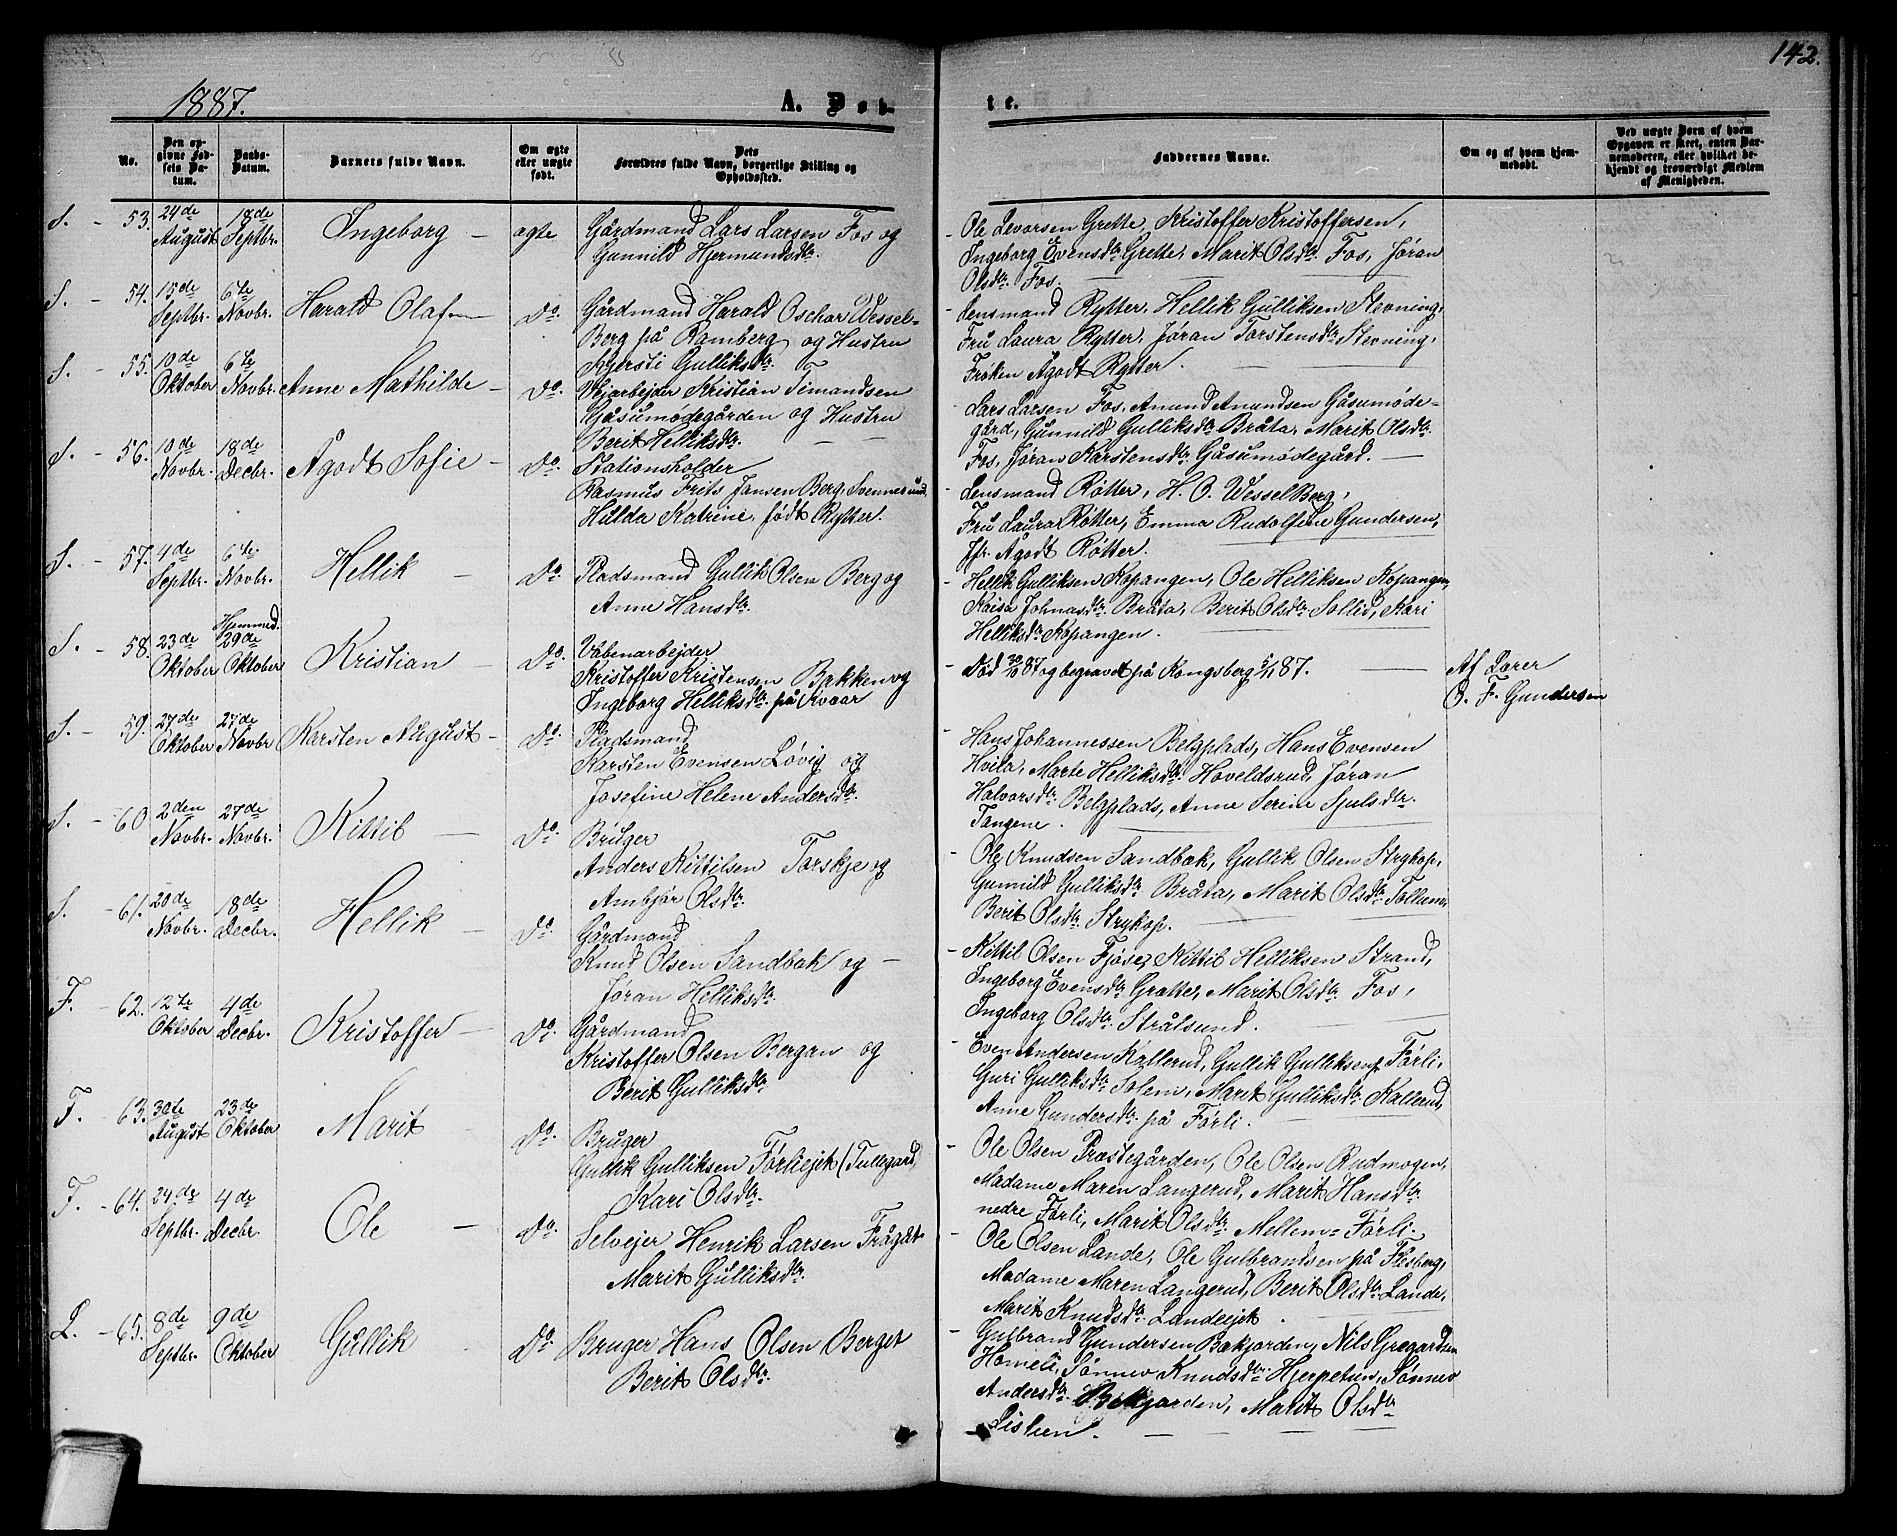 142.
1887.
A. Døb-
te.
No.
Den op-
givne Fød-
sels Da-
tum.
Daabs-
Datum.
Barnets fulde Navn.
Om ægte
eller uægte
født.
Dets
Forældres fulde Navn, borgerlige Stilling og
Opholdssted.
Faddernes Navne.
Om og af hvem hjem-
medøbt.
Ved uægte Børn af hvem
Opgaven er skeet, enten Bar-
nemoderen, eller hvilket be-
kjendt og troværdigt Medlem
af Menigheden.
S. - 53. 24de August 18de Septbr. Ingeborg - ægte
Gårdmand Lars Larsen Fos og
Gunnild Hjermundsdtr.
- Ole Levorsen Grette, Kristoffer Kristoffersen,
Ingeborg Evensdtr Grette, Marit Olsdtr. Fos, Jøran
Olsdtr. Fos.
S. - 54. 15de Septbr. 6te Novbr. Harald Olaf - Do.
Gårdmand Harald Oschar Wessel-
Berg på Ramberg og Hustru
Kjersti Gulliksdtr.
- Lensmand Rytter, Hellik Gulliksen Stevning,
Fru Laura Rytter, Jøran Torstensdtr Stevning,
Frøken Ågodt Rytter.
S. - 55. 10de Oktober 6te Novbr. Anne Mathilde - Do.
Vejarbejder Kristian Timandsen
Gåsumødegården og Hustru
Berit Helliksdtr.
- Lars Larsen Fos, Amund Amundsen Gåsumøde-
gård, Gunnild Gulliksdtr Bråta, Marit Olsdtr.
Fos, Jøran Karstensdtr Gåsumødegård.
S. - 56. 10de Novbr. 18de Decbr. Ågodt Sofie - Do.
Stationsholder
Rasmus Frits Jansen Berg, Svennesund,
Hulda Katrine, født Rytter.
- Lensmand Røtter, H. O. Wessel Berg,
Fru Laura Røtter, Emma Rudolfine Gundersen,
Jfr. Ågodt Røtter.
S. - 57. 4de Septbr. 6te Novbr. Hellik - Do.
Pladsmand Gullik Olsen Berg og
Anne Hansdtr.
- Hellik Gulliksen Kopangen, Ole Helliksen Kopangen,
Kaisa Johnasdtr. Bråta, Berit Olsdtr Sollid, Kari
Helliksdtr Kopangen.
S. - 58. 23de Oktober Hjemmed. 29de Oktober Kristian - Do.
Våbenarbejder
Kristoffer Kristensen Bakken og
Ingeborg Helliksdtr. på Kvaar
- Død 30/10 87 og begravet på Kongsberg 5/11 87.
Af Lærer
O. F. Gundersen
S. - 59. 27de Oktober 27de Novbr Karsten August - Do.
Pladsmand
Karsten Evensen Løvig og
Josefine Helene Andersdtr.
- Hans Johannessen Belgplads, Hans Evensen
Hvila, Marte Helliksdtr. Hoveldsrud, Jøran
Halvorsdtr. Belgplads, Anne Serine Sjulsdtr.
Tangene.
S. - 60. 2den Novbr. 27de Novbr. Kittil - Do.
Bruger
Anders Kittilsen Torskje og
Ambjør Olsdtr.
- Ole Knudsen Sandbæk, Gullik Olsen Strykop,
Gunnild Gulliksdtr Bråta, Marit Olsdtr. Tollunes,
Berit Olsdtr. Strykop.
S. - 61. 20de Novbr. 18de Decbr. Hellik - Do.
Gårdmand
Knud Olsen Sandbæk og -
Jøran Helliksdtr.
- Kittil Olsen Fjøse, Kittil Helliksen Strand,
Ingeborg Evensdtr Grette, Marit Olsdtr. Fos,
Ingeborg Olsdtr. Strålsund.
F. - 62. 12te Oktober 4de Decbr. Kristoffer - Do.
Gårdmand
Kristoffer Olsen Bergan og
Berit Gulliksdtr
- Even Andersen Kallerud, Gullik Gulliksen Førli,
Guri Gulliksdtr Solem, Marit Gulliksdtr. Kallerud,
Anne Gundersdtr. på Førli.
F. - 63. 30te August 23de Oktober Marit - Do.
Bruger
Gullik Gulliksen Førliejet (Tullegard,
Kari Olsdtr.
- Ole Olsen Præstegården, Ole Olsen Rudmogen,
Madame Maren Langerud, Marit Hansdtr
nedre Førli, Marit Olsdtr. Mellem-Førli.
F. - 64. 24de Septbr. 4de Decbr. Ole - Do.
Selvejer Henrik Larsen Trågut
Marit Gulliksdtr.
- Ole Olsen Lande, Ole Gulbrandsen på Flesberg,
Madame Maren Langerud, Berit Olsdtr. Lande,
Marit Knudsdtr. Landeejet.
L. - 65. 8de Septbr. 9de Oktober Gullik Do.
Bruger Hans Olsen Berget
Berit Olsdtr.
- Gulbrand Gundersen Bækjorden, Nils Gregardsen
Homeli, Sønnev Knudsdtr. Hjerpetun, Sønnev
Andersdtr. Bækjorden, Marit Olsdtr
Lislien.